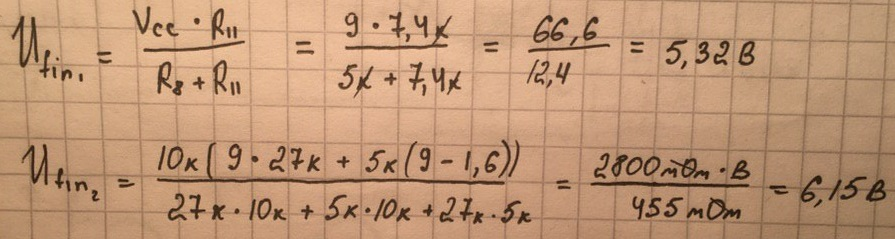 U_fin₁ = Vcc · R₁₁ / R₈ + R₁₁ = 9 · 7,4к / 5к + 7,4к = 66,6 / 12,4 = 5,32 В
U_fin₂ = 10к(9 · 27к + 5к(9 - 1,6)) / 27к · 10к + 5к · 10к + 27к · 5к = 2800 мОм · В / 455 мОм = 6,15 В